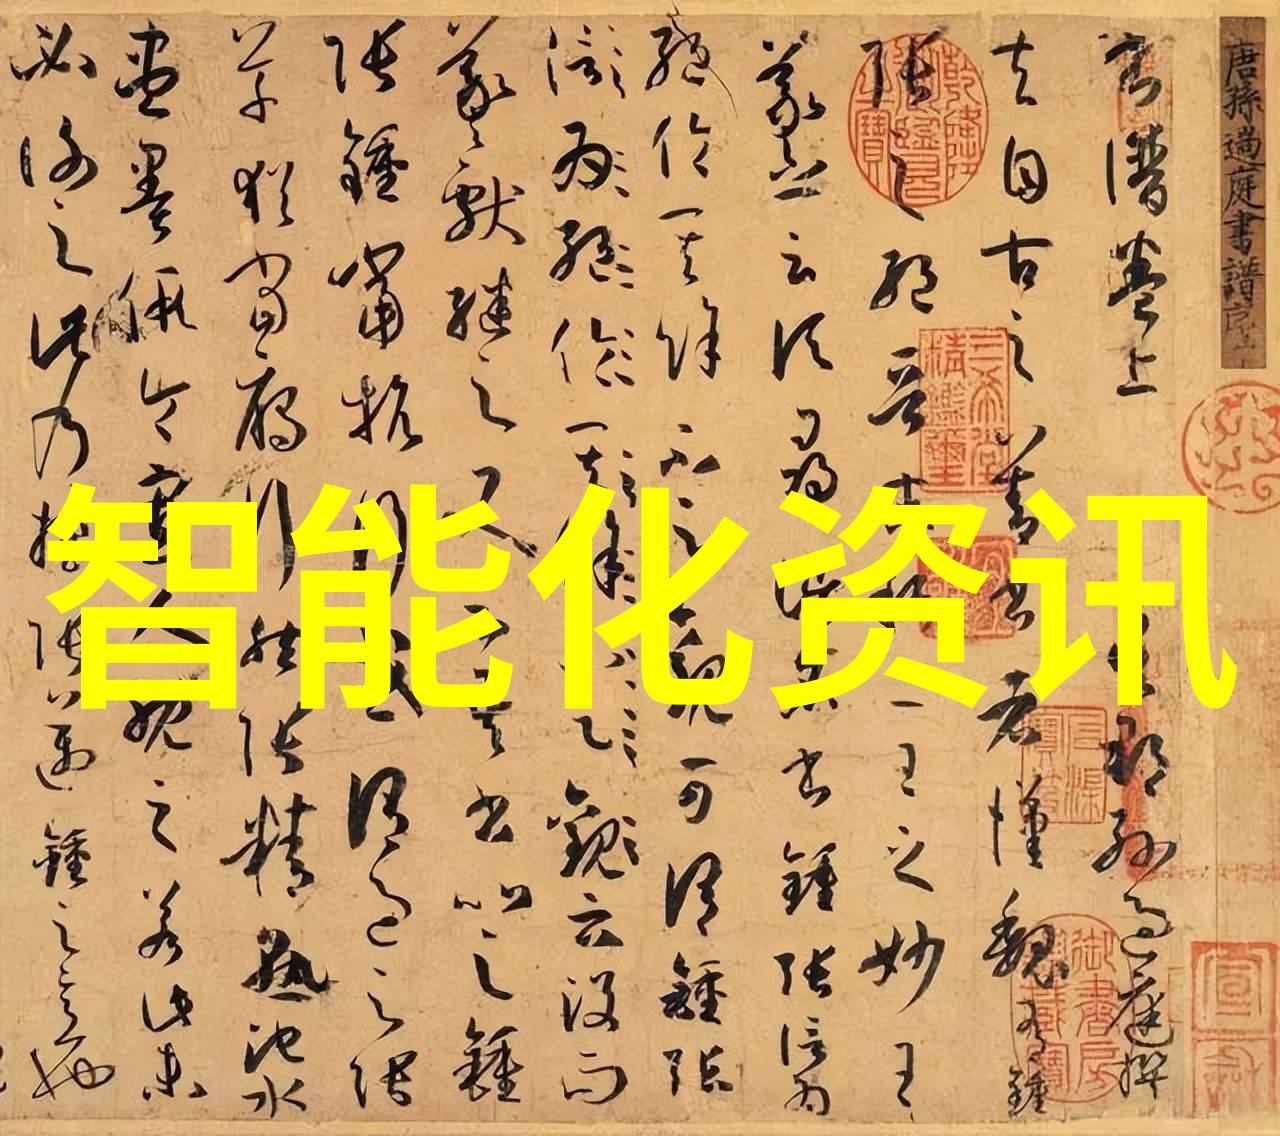 唐孫過庭書譜序上
書譜卷上 吳郡孫過庭撰
夫自古之善書者漢魏有鍾
張之絕晉末稱二王之妙王
羲之云頃尋諸名書鍾張信為
絕倫其餘不足觀可謂鍾張
信為絕倫其餘不足觀云沒而
羲獻繼之又云吾書比之鍾
張鍾當抗行或謂過之張
草猶當雁行然張精熟池水
盡墨假令寡人耽之若此未
必後之此乃推張邁鍾之意也
智能化资讯
三希堂精鑑璽